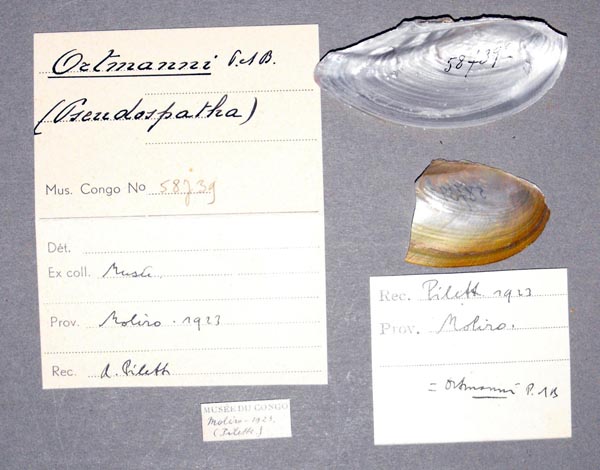 Ortmanni P.A.B.
(Pseudospatha)
Mus. Congo No 58739
Dét.
Ex coll. Musée
Prov. Moliro. 1923
Rec. A. Pilett
MUSÉE DU CONGO
Moliro - 1923.
(Pilette.)
58739
Rec. Pilett 1923
Prov. Moliro.
= Ortmanni P.A.B